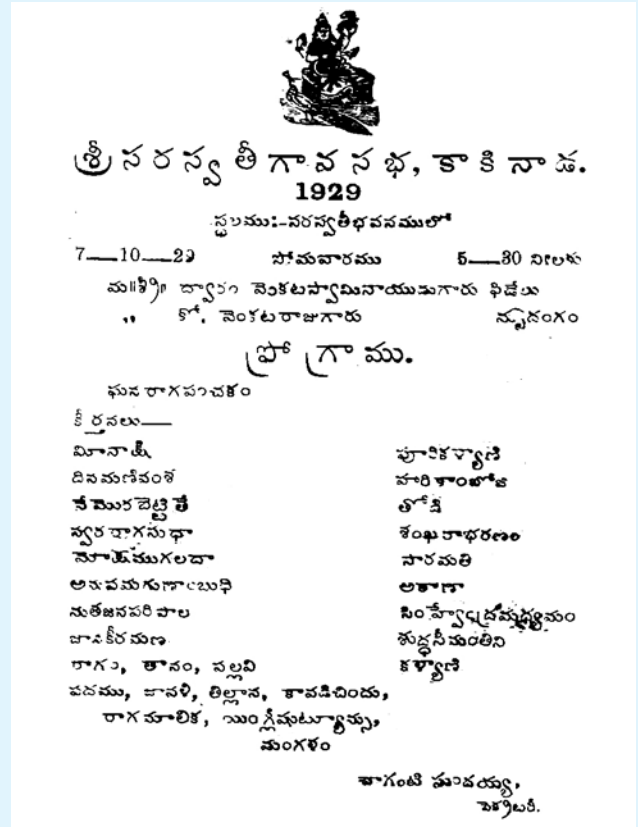 శ్రీ సరస్వతీగానసభ, కాకినాడ.
1929
స్థలము:-సరస్వతీభవనములో
7—10—29 సోమవారము 5—30 నీలకు
మ॥శ్రీ॥ ద్వారం వెంకటస్వామినాయుడుగారు ఫిడేలు
,, కో. వెంకటరాజుగారు మృదంగం
ప్రోగ్రాము.
ఘనరాగపంచకం
కీర్తనలు—
మీనాక్షి పూర్వికళ్యాణి
దినమణివంశ హరికాంభోజి
నేమొరబెట్టితే తోడి
స్వరరాగసుధా శంఖరాభరణం
మోక్షముగలదా సారమతి
అనుపమగుణాంబుధి అఠాణా
నుతజనపరిపాల సింహ్వేంద్రమధ్యమం
జానకీరమణ శుద్ధసీమంతిని
రాగం, తానం, పల్లవి కళ్యాణి
పదము, జావళి, తిల్లాన, కావడిచిందు,
రాగమాలిక, యింగ్లీషుట్యూన్సు,
మంగళం
చాగంటి
సెక్రటరీ.